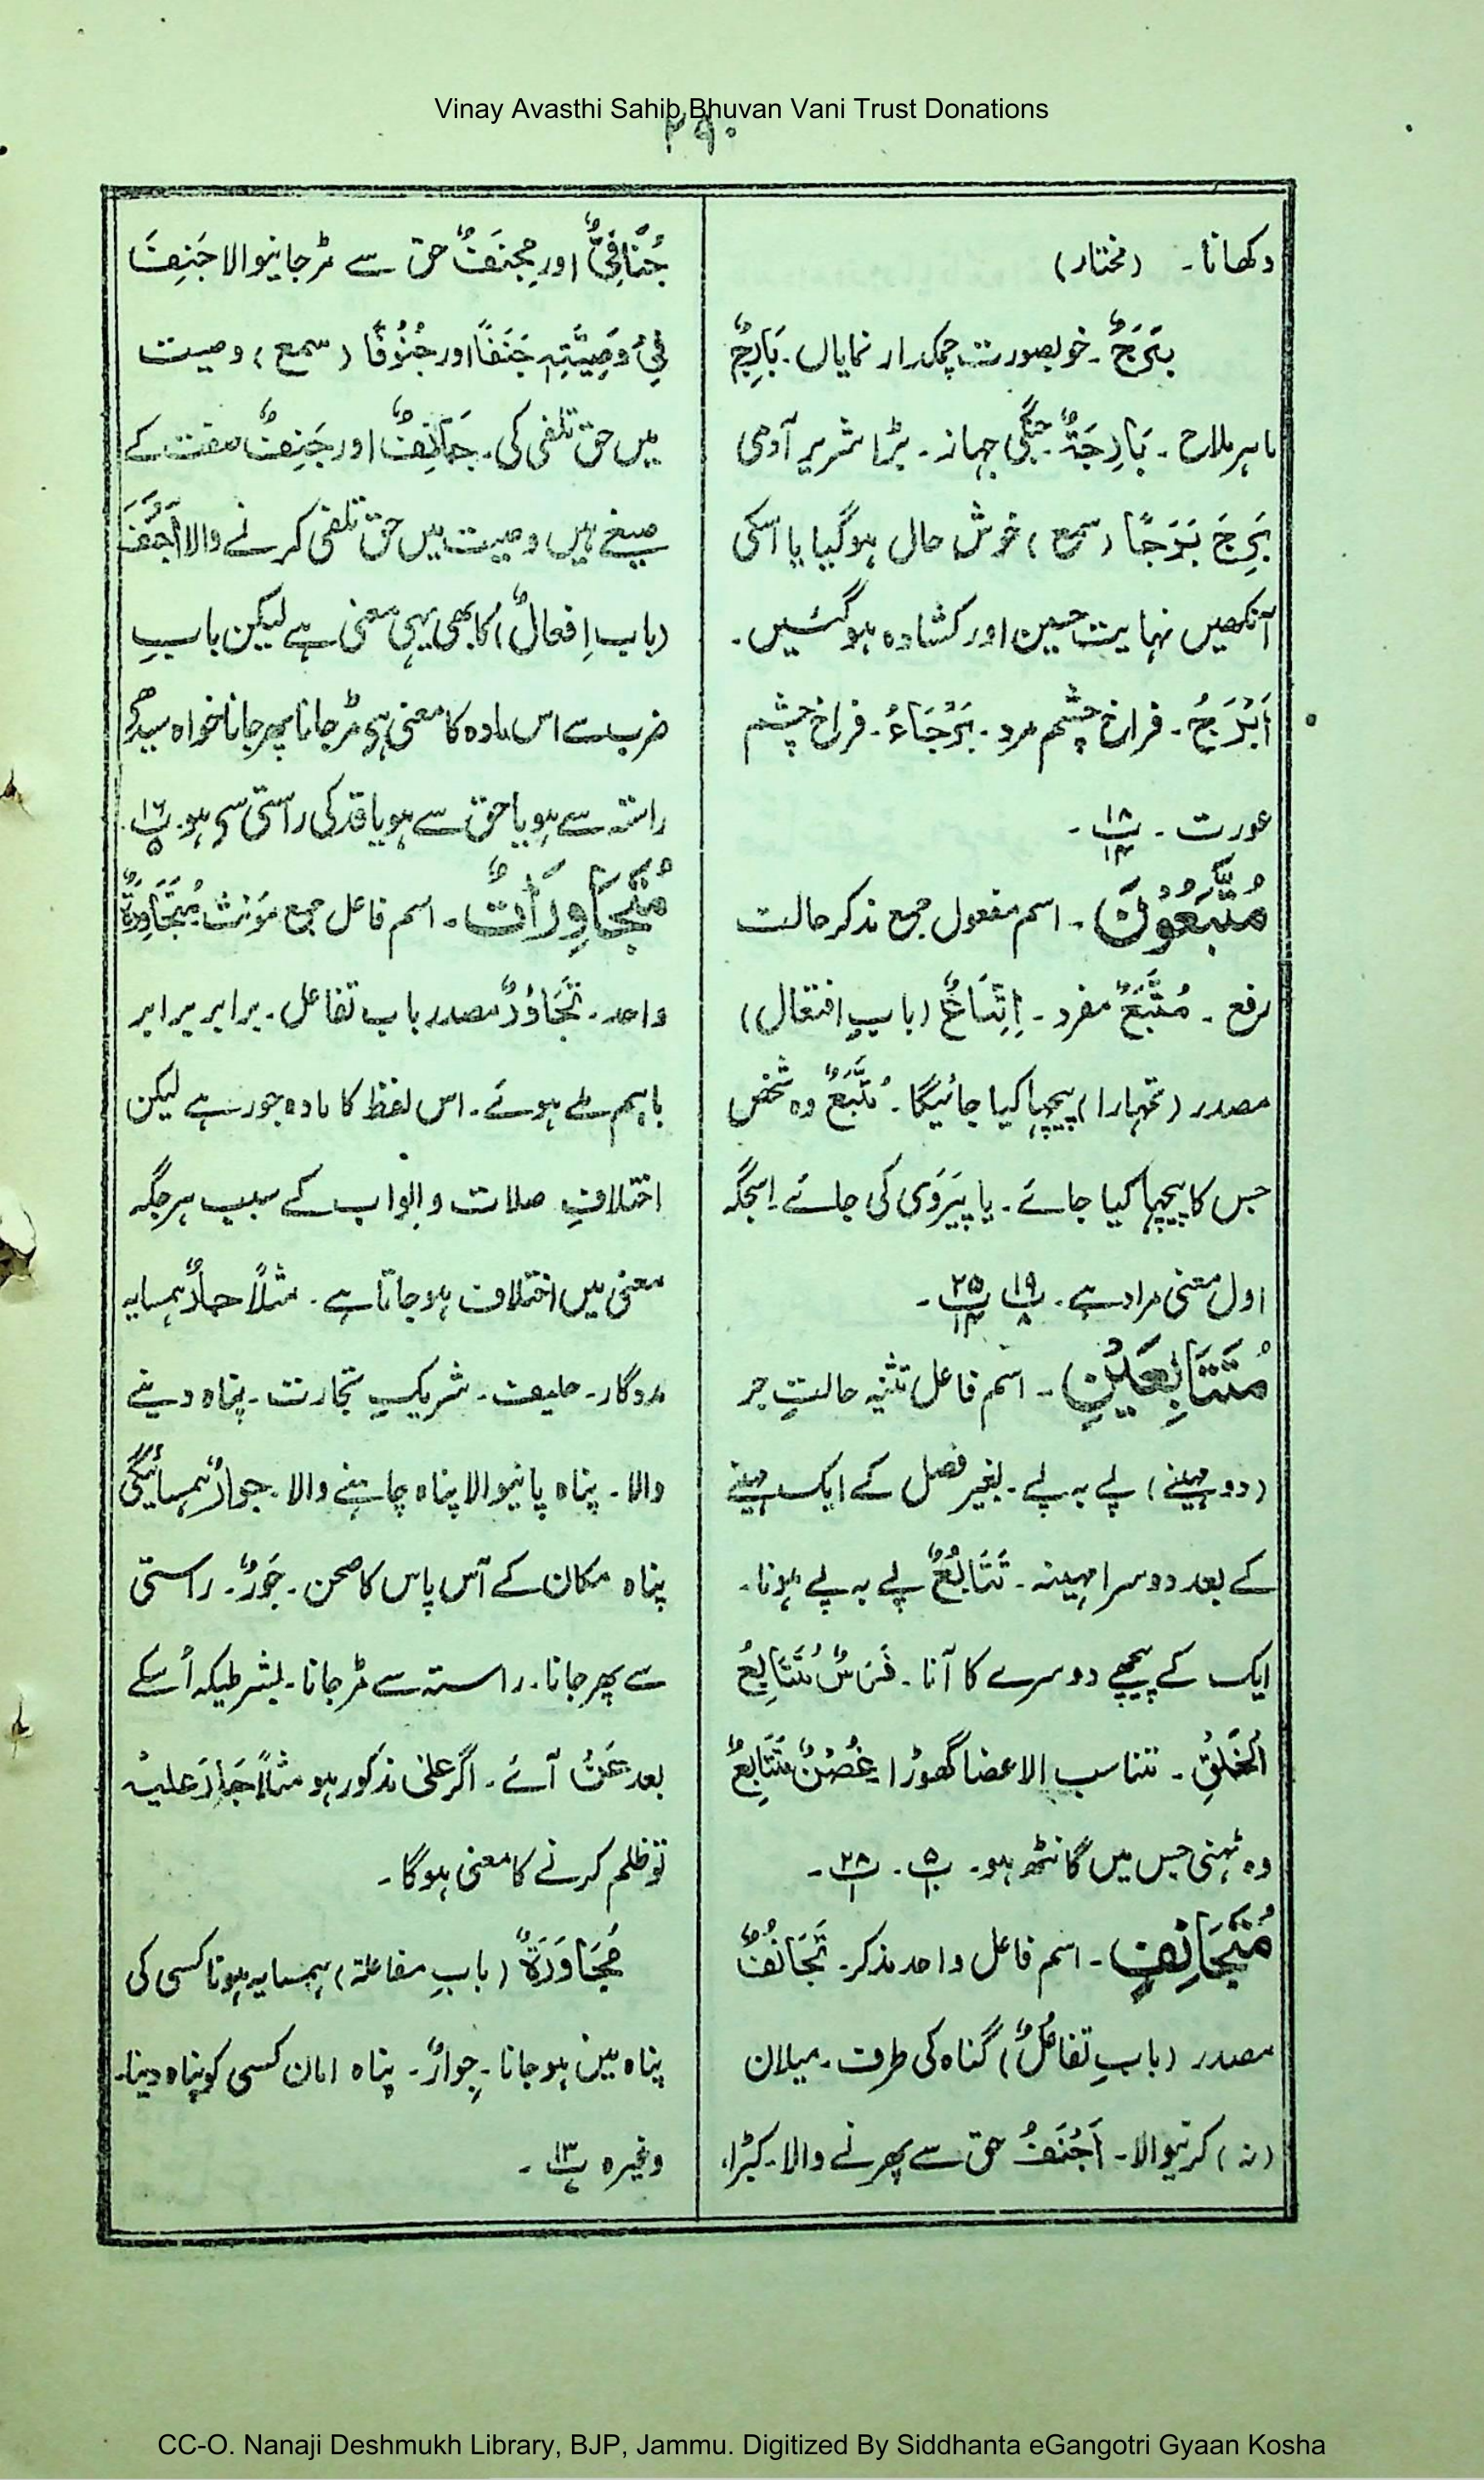 Vinay Avasthi Sahib Bhuvan Vani Trust Donations
۲۹۰
دکھانا۔ (مختار)
بَرَجٌ۔ خوبصورت چمکدار نمایاں۔ بَارِجٌ
ماہر ملاح۔ بَارِجَةٌ۔ جنگی جہاز۔ بڑا شریر آدمی
بَرِجَ بَرَجًا (سمع) خوش حال ہوگیا یا اسکی
آنکھیں نہایت حسین اور کشادہ ہوگئیں۔
اَبْرَجُ۔ فراخ چشم مرد۔ بَرْجَاءُ۔ فراخ چشم
عورت۔ پ۱۸ ۱۴۔
مُتَّبَعُوْنَ۔ اسم مفعول جمع مذکر حالت
رفع۔ مُتَّبَعٌ مفرد۔ اِتِّبَاعٌ (بابِ افتعال)
مصدر (تمہارا) پیچھا کیا جائیگا۔ مُتَّبَعٌ وہ شخص
جس کا پیچھا کیا جائے۔ یا پَیَرْوِی کی جائے۔ اسجگہ
اول معنی مراد ہے۔ پ۱۹ ۸ پ۲۵ ۱۴۔
مُتَتَابِعَيْنِ۔ اسم فاعل تثنیہ حالتِ جر
(دو مہینے) پے بہ پے۔ بغیر فصل کے ایک مہینے
کے بعد دوسرا مہینہ۔ تَتَابُعٌ پے بہ پے ہونا۔
ایک کے پیچھے دوسرے کا آنا۔ فَرَسٌ مُتَتَابِعُ
الْخَلْقِ۔ تناسب الاعضا گھوڑا غُصْنٌ مُتَتَابِعٌ
وہ ٹہنی جس میں گانٹھ ہو۔ پ۵ ۱۰۔ پ۲۸ ۱۔
مُتَجَانِفٍ۔ اسم فاعل واحد مذکر۔ تَجَانُفٌ
مصدر (بابِ تفاعُلٌ) گناہ کی طرف۔ میلان
(نہ) کرنیوالا۔ اَجْنَفُ حق سے پھرنے والا۔ کبڑا،
جُنَافِيٌّ اور مِجْنَفٌ حق سے مڑ جانیوالا جَنِفَ
فِيْ وَصِيَّتِهٖ جَنَفًا اور جُنُوْفًا (سمع) وصیت
میں حق تلفی کی۔ جَانِفٌ اور جَنِفٌ صفت کے
صیغے ہیں وصیت میں حق تلفی کرنے والا اَجْنَفَ
(باب اِفعالٌ) کا بھی یہی معنی ہے لیکن بابِ
ضرب سے اس مادہ کا معنی ہے مڑ جانا پھر جانا خواہ سیدھے
راستہ سے ہو یا حق سے ہو یا قد کی راستی سے ہو۔ پ۱۶ ۵۔
مُتَجَاوِرَاتٌ۔ اسم فاعل جمع مؤنث مُتَجَاوِرَةٌ
واحد۔ تَجَاوُرٌ مصدر باب تفاعل۔ برابر برابر
باہم ملے ہوئے۔ اس لفظ کا مادہ جور ہے لیکن
اختلافِ صلات و ابواب کے سبب ہر جگہ
معنی میں اختلاف ہو جاتا ہے۔ مثلاً جارٌ ہمسایہ
مددگار۔ حلیف۔ شریکِ تجارت۔ پناہ دینے
والا۔ پناہ پانیوالا پناہ چاہنے والا۔ جوارٌ ہمسائیگی
پناہ مکان کے آس پاس کا صحن۔ جَوْرٌ۔ راستی
سے پھر جانا۔ راستہ سے مڑ جانا۔ بشرطیکہ اُسکے
بعد عَنْ آئے۔ اگر علیٰ مذکور ہو مثلاً جَارَ عَلَيْهِ
تو ظلم کرنے کا معنی ہوگا۔
مُجَاوَرَةٌ (بابِ مفاعلة) ہمسایہ ہونا کسی کی
پناہ میں ہوجانا۔ جِوارٌ۔ پناہ امان کسی کو پناہ دینا۔
وغیرہ پ۱۳۔
CC-O. Nanaji Deshmukh Library, BJP, Jammu. Digitized By Siddhanta eGangotri Gyaan Kosha